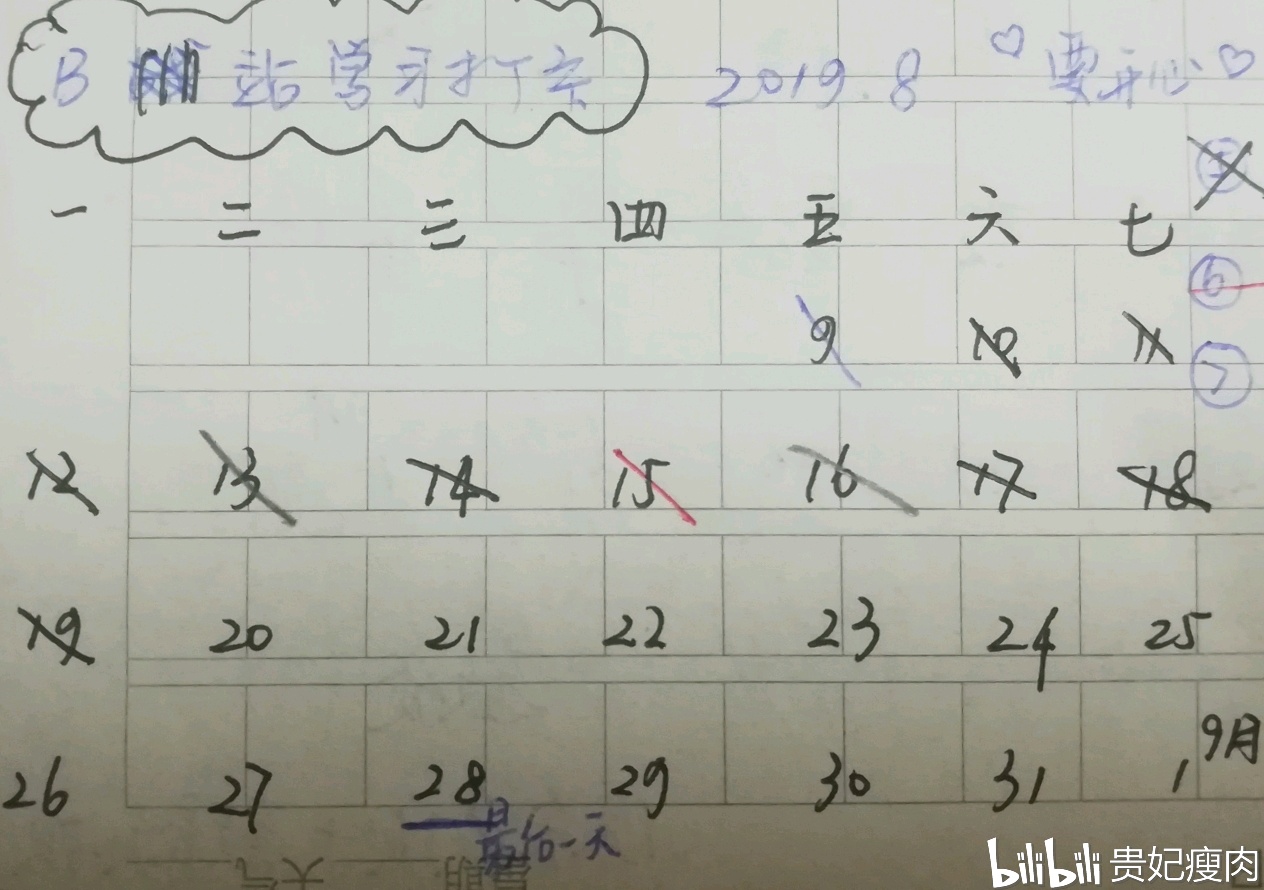 B 站学习打卡 2019.8 ♡ 要开心 ♡
一 二 三 四 五 六 七
⑥
9 10 11 ⑦
12 13 14 15 16 17 18
19 20 21 22 23 24 25
9月
26 27 28 29 30 31 1
最后一天
星期 天气
bilibili 贵妃瘦肉